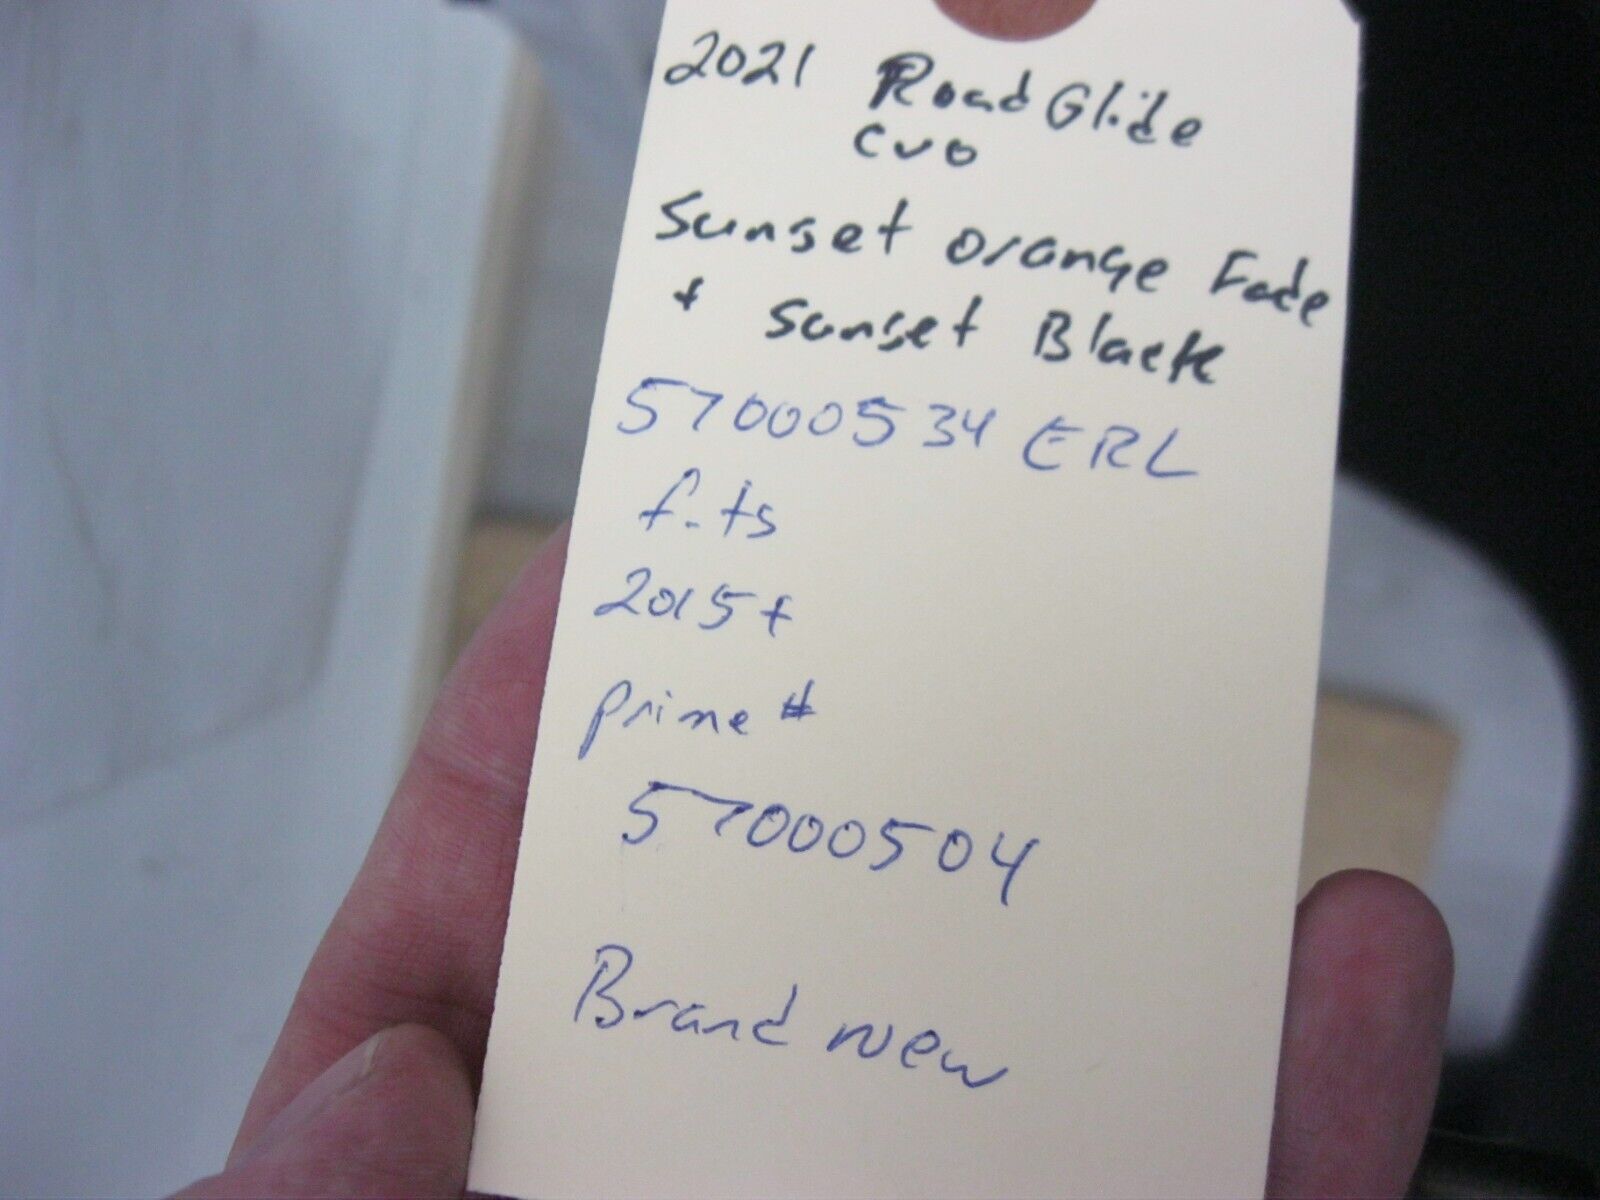 2021 Road Glide
CVO
Sunset Orange Fade
+ Sunset Black
57000534 ERL
fits
2015+
prime #
57000504
Brand new